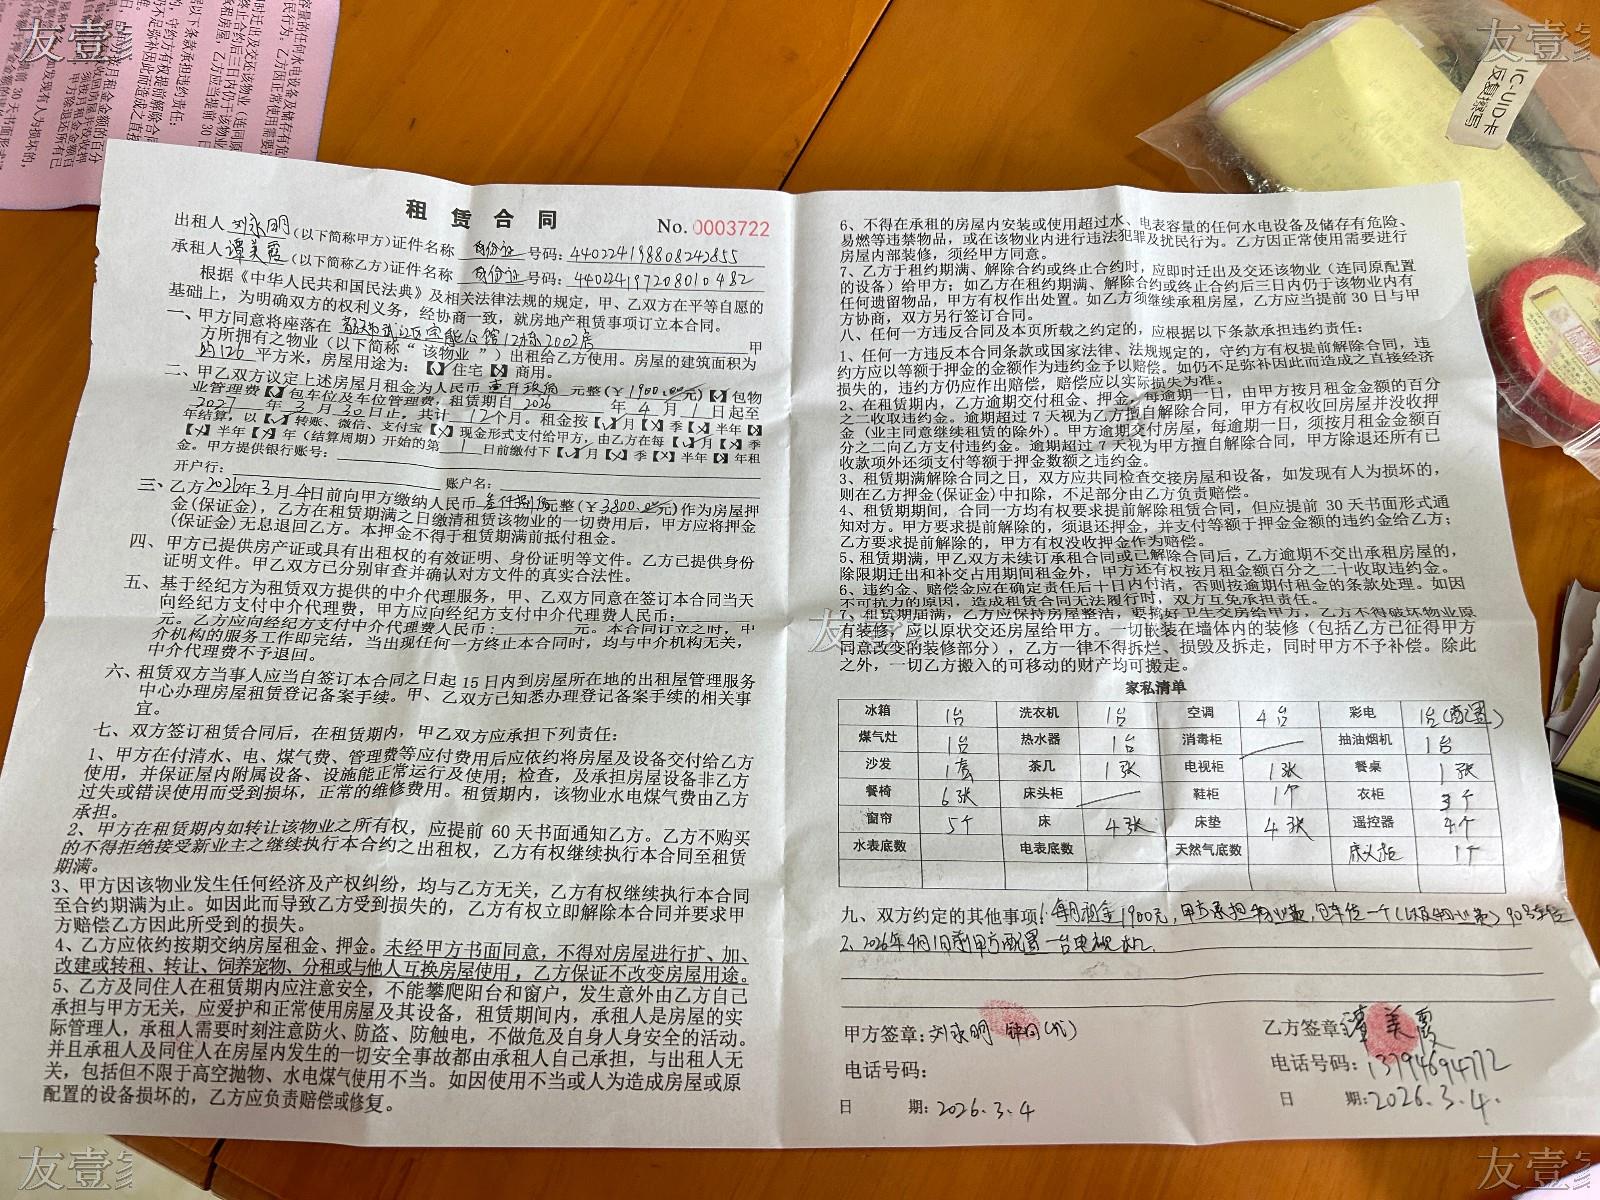 友壹家
友壹家
IC-UID卡
反复擦写
租 赁 合 同
No. 0003722
出租人 刘永明 (以下简称甲方)证件名称 身份证 号码: 440224198808242855
承租人 谭美霞 (以下简称乙方)证件名称 身份证 号码: 440224197208010482
根据《中华人民共和国民法典》及相关法律法规的规定,甲、乙双方在平等自愿的
基础上,为明确双方的权利义务,经协商一致,就房地产租赁事项订立本合同。
一、甲方同意将座落在 公馆12栋2002房 甲
方所拥有之物业(以下简称“该物业”)出租给乙方使用。房屋的建筑面积为
约126 平方米,房屋用途为:【✓】住宅【×】商用。
二、甲乙双方议定上述房屋月租金为人民币 壹仟玖佰 元整(¥ 1900.00元)【✓】包物
业管理费【✓】包车位及车位管理费,租赁期自 2026 年 4 月 1 日起至
2027 年 3 月 30 日止,共计 12 个月。租金按【✓】月【×】季【×】半年【×】
年结算,以【✓】转账、微信、支付宝【×】现金形式支付给甲方,由乙方在每【✓】月【×】季
【×】半年【×】年(结算周期)开始的第 1 日前缴付下【✓】月【×】季【×】半年【×】年租
金。甲方提供银行账号:
开户行: 账户名:
三、乙方2026年3月4日前向甲方缴纳人民币 叁仟捌佰元整(¥3800.00元)作为房屋押
金(保证金),乙方在租赁期满之日缴清租赁该物业的一切费用后,甲方应将押金
(保证金)无息退回乙方。本押金不得于租赁期满前抵付租金。
四、甲方已提供房产证或具有出租权的有效证明、身份证明等文件。乙方已提供身份
证明文件。甲乙双方已分别审查并确认对方文件的真实合法性。
五、基于经纪方为租赁双方提供的中介代理服务,甲、乙双方同意在签订本合同当天
向经纪方支付中介代理费,甲方应向经纪方支付中介代理费人民币:
元。乙方应向经纪方支付中介代理费人民币: 元。本合同订立之时,中
介机构的服务工作即完结,当出现任何一方终止本合同时,均与中介机构无关,
中介代理费不予退回。
六、租赁双方当事人应当自签订本合同之日起 15 日内到房屋所在地的出租屋管理服务
中心办理房屋租赁登记备案手续。甲、乙双方已知悉办理登记备案手续的相关事
宜。
七、双方签订租赁合同后,在租赁期内,甲乙双方应承担下列责任:
1、甲方在付清水、电、煤气费、管理费等应付费用后应依约将房屋及设备交付给乙方
使用,并保证屋内附属设备、设施能正常运行及使用;检查,及承担房屋设备非乙方
过失或错误使用而受到损坏,正常的维修费用。租赁期内,该物业水电煤气费由乙方
承担。
2、甲方在租赁期内如转让该物业之所有权,应提前 60 天书面通知乙方。乙方不购买
的不得拒绝接受新业主之继续执行本合约之出租权,乙方有权继续执行本合同至租赁
期满。
3、甲方因该物业发生任何经济及产权纠纷,均与乙方无关,乙方有权继续执行本合同
至合约期满为止。如因此而导致乙方受到损失的,乙方有权立即解除本合同并要求甲
方赔偿乙方因此所受到的损失。
4、乙方应依约按期交纳房屋租金、押金。未经甲方书面同意,不得对房屋进行扩、加、
改建或转租、转让、饲养宠物、分租或与他人互换房屋使用,乙方保证不改变房屋用途。
5、乙方及同住人在租赁期内应注意安全,不能攀爬阳台和窗户,发生意外由乙方自己
承担与甲方无关,应爱护和正常使用房屋及其设备,租赁期间内,承租人是房屋的实
际管理人,承租人需要时刻注意防火、防盗、防触电,不做危及自身人身安全的活动。
并且承租人及同住人在房屋内发生的一切安全事故都由承租人自己承担,与出租人无
关,包括但不限于高空抛物、水电煤气使用不当。如因使用不当或人为造成房屋或原
配置的设备损坏的,乙方应负责赔偿或修复。
6、不得在承租的房屋内安装或使用超过水、电表容量的任何水电设备及储存有危险、
易燃等违禁物品,或在该物业内进行违法犯罪及扰民行为。乙方因正常使用需要进行
房屋内部装修,须经甲方同意。
7、乙方于租约期满、解除合约或终止合约时,应即时迁出及交还该物业(连同原配置
的设备)给甲方;如乙方在租约期满、解除合约或终止合约后三日内仍于该物业内有
任何遗留物品,甲方有权作出处置。如乙方须继续承租房屋,乙方应当提前 30 日与甲
方协商,双方另行签订合同。
八、任何一方违反合同及本页所载之约定的,应根据以下条款承担违约责任:
1、任何一方违反本合同条款或国家法律、法规规定的,守约方有权提前解除合同,违
约方应以等额于押金的金额作为违约金予以赔偿。如仍不足弥补因此而造成之直接经济
损失的,违约方仍应作出赔偿,赔偿应以实际损失为准。
2、在租赁期内,乙方逾期交付租金、押金,每逾期一日,由甲方按月租金金额的百分
之二收取违约金。逾期超过 7 天视为乙方擅自解除合同,甲方有权收回房屋并没收押
金(业主同意继续租赁的除外)。甲方逾期交付房屋,每逾期一日,须按月租金金额百
分之二向乙方支付违约金。逾期超过 7 天视为甲方擅自解除合同,甲方除退还所有已
收款项外还须支付等额于押金数额之违约金。
3、租赁期满解除合同之日,双方应共同检查交接房屋和设备,如发现有人为损坏的,
则在乙方押金(保证金)中扣除,不足部分由乙方负责赔偿。
4、租赁期期间,合同一方均有权要求提前解除租赁合同,但应提前 30 天书面形式通
知对方。甲方要求提前解除的,须退还押金,并支付等额于押金金额的违约金给乙方;
乙方要求提前解除的,甲方有权没收押金作为赔偿。
5、租赁期满,甲甲乙双方未续订承租合同或已解除合同后,乙方逾期不交出承租房屋的,
除限期迁出和补交占用期间租金外,甲方还有权按月租金额百分之二十收取违约金。
6、违约金、赔偿金应在确定责任后十日内付清,否则按逾期付租金的条款处理。如因
不可抗力的原因,造成租赁合同无法履行时,双方互免承担责任。
7、租赁期届满,乙方应保持房屋整洁,要搞好卫生交房给甲方,乙方不得破坏物业原
有装修,应以原状交还房屋给甲方。一切嵌装在墙体内的装修(包括乙方已征得甲方
同意改变的装修部分),乙方一律不得拆烂、损毁及拆走,同时甲方不予补偿。除此
之外,一切乙方搬入的可移动的财产均可搬走。
家私清单
冰箱 1台 洗衣机 1台 空调 4台 彩电 1台(配置)
煤气灶 1台 热水器 1台 消毒柜 抽油烟机 1台
沙发 1套 茶几 1张 电视柜 1张 餐桌 1张
餐椅 6张 床头柜 鞋柜 1个 衣柜 3个
窗帘 5个 床 4张 床垫 4张 遥控器 4个
水表底数 电表底数 天然气底数 床头柜 1个
九、双方约定的其他事项:1.每月租金1900元,甲方承担物业费,包车位一个(以及物业费)90号车位
2、2026年4月1日前甲方配置一台电视机.
甲方签章: 刘永明 (代)
电话号码:
日 期: 2026.3.4
乙方签章: 谭美霞
电话号码: 13794694772
日 期: 2026.3.4.
友壹家
友壹家
友壹家